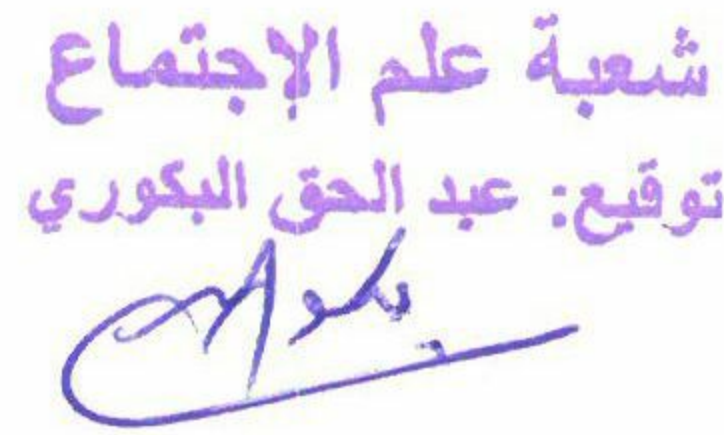 شعبة علم الإجتماع
توقيع: عبد الحق البكوري